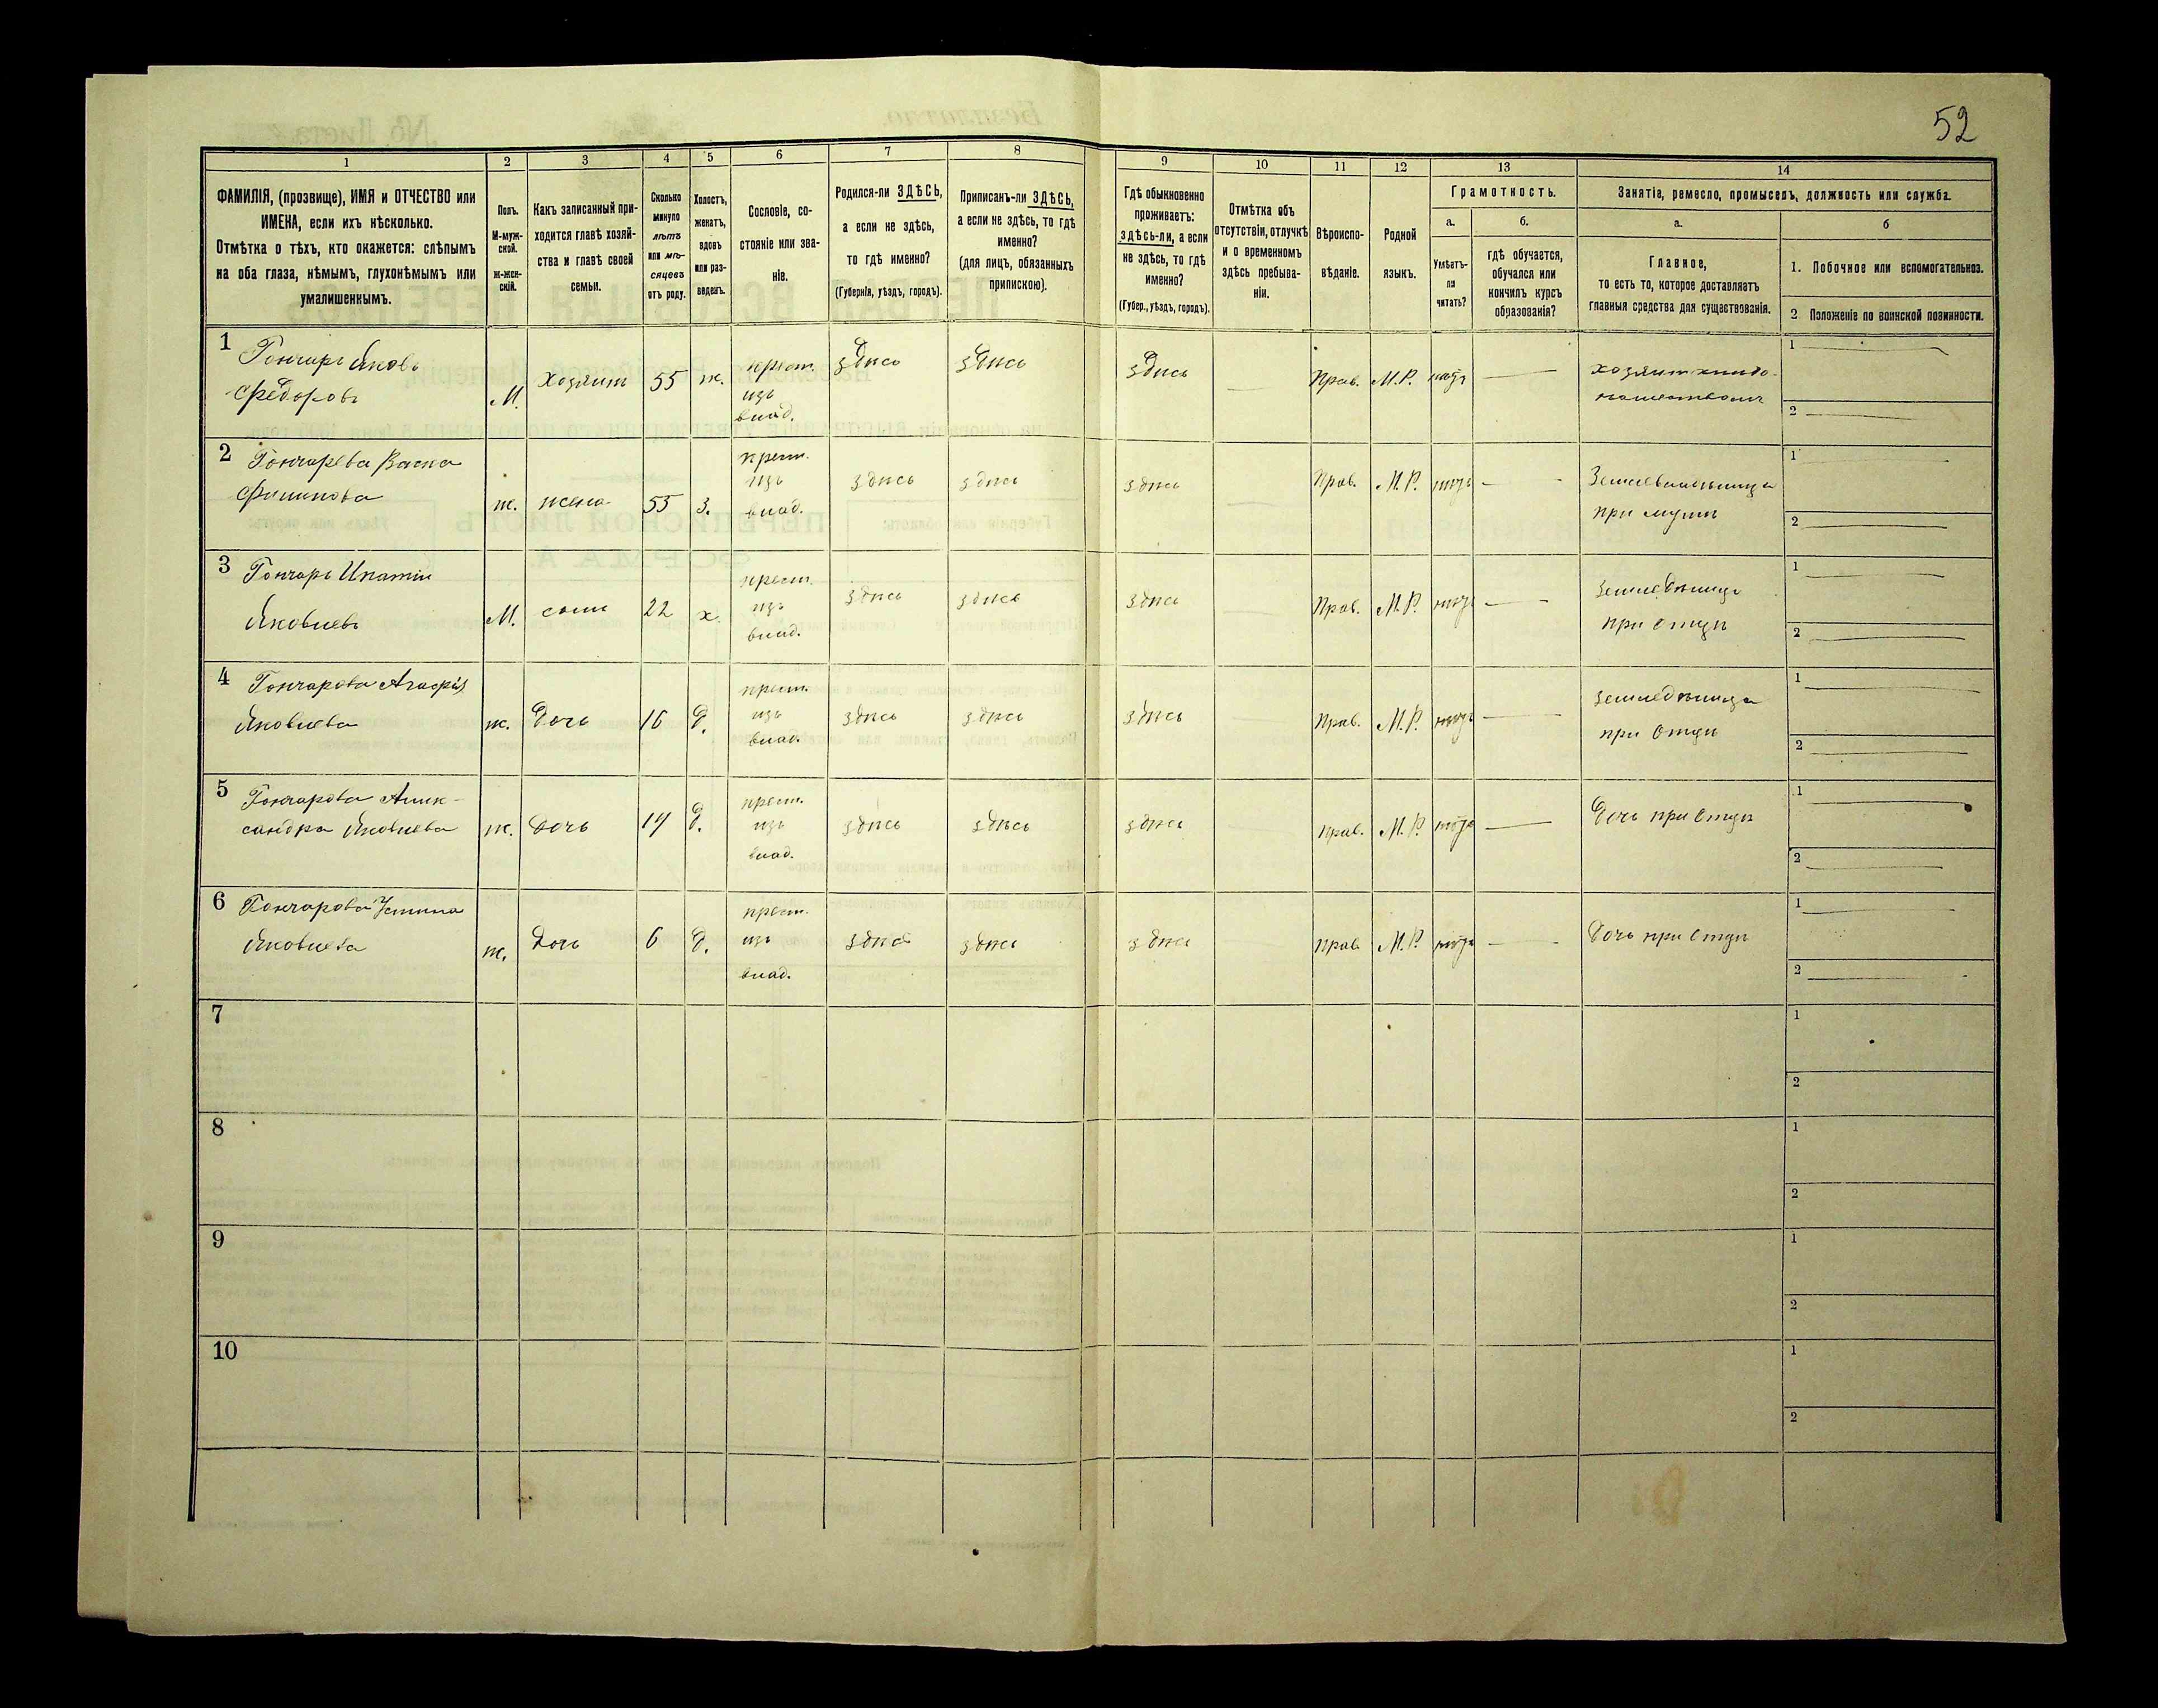 52
1 2 3 4 5 6 7 8 9 10 11 12 13 14
ФАМИЛІЯ, (прозвище), ИМЯ и ОТЧЕСТВО или
ИМЕНА, если ихъ нѣсколько.
Отмѣтка о тѣхъ, кто окажется: слѣпымъ
на оба глаза, нѣмымъ, глухонѣмымъ или
умалишеннымъ.
Полъ.
М-муж-
ской.
ж-жен-
скій.
Какъ записанный при-
ходится главѣ хозяй-
ства и главѣ своей
семьи.
Сколько
минуло
лѣтъ
или мѣ-
сяцевъ
отъ роду.
Холостъ,
женатъ,
вдовъ
или раз-
веденъ.
Сословіе, со-
стояніе или зва-
ніе.
Родился-ли ЗДѢСЬ,
а если не здѣсь,
то гдѣ именно?
(Губернія, уѣздъ, городъ).
Приписанъ-ли ЗДѢСЬ,
а если не здѣсь, то гдѣ
именно?
(для лицъ, обязанныхъ
припискою).
Гдѣ обыкновенно
проживаетъ:
здѣсь-ли, а если
не здѣсь, то гдѣ
именно?
(Губер., уѣздъ, городъ).
Отмѣтка объ
отсутствіи, отлучкѣ
и о временномъ
здѣсь пребыва-
ніи.
Вѣроиспо-
вѣданіе.
Родной
языкъ.
Грамотность.
а.
Умѣетъ-
ли
читать?
б.
гдѣ обучается,
обучался или
кончилъ курсъ
образованія?
Занятіе, ремесло, промыселъ, должность или служба.
а.
Главное,
то есть то, которое доставляетъ
главныя средства для существованія.
б
1. Побочное или вспомогательное.
2. Положеніе по воинской повинности.
1 Гончаръ Яковъ
Федоровъ
М. Хозяинъ 55 ж. крест.
изъ
влад.
здѣсь здѣсь здѣсь Прав. М.Р.
1
2
2 Гончарева
ж. жена 55 з. крест.
изъ
влад.
здѣсь здѣсь здѣсь Прав. М.Р.
при мужѣ
1
2
3 Гончаръ Ипатій
Яковлевъ
М. сынъ 22 х. крест.
изъ
влад.
здѣсь здѣсь здѣсь Прав. М.Р.
при отцѣ
1
2
4 Гончарова
Яковлева
ж. Дочь 16 д. крест.
изъ
влад.
здѣсь здѣсь здѣсь Прав. М.Р.
при отцѣ
1
2
5 Гончарова Алек-
сандра Яковлева
ж. дочь 14 д. крест.
изъ
влад.
здѣсь здѣсь здѣсь прав. М.Р.
Дочь при отцѣ
1
2
6 Гончарова Устина
Яковлева
ж. Дочь 6 д. крест.
изъ
влад.
здѣсь здѣсь здѣсь прав М.Р.
Дочь при отцѣ
1
2
7
1
2
8
1
2
9
1
2
10
1
2